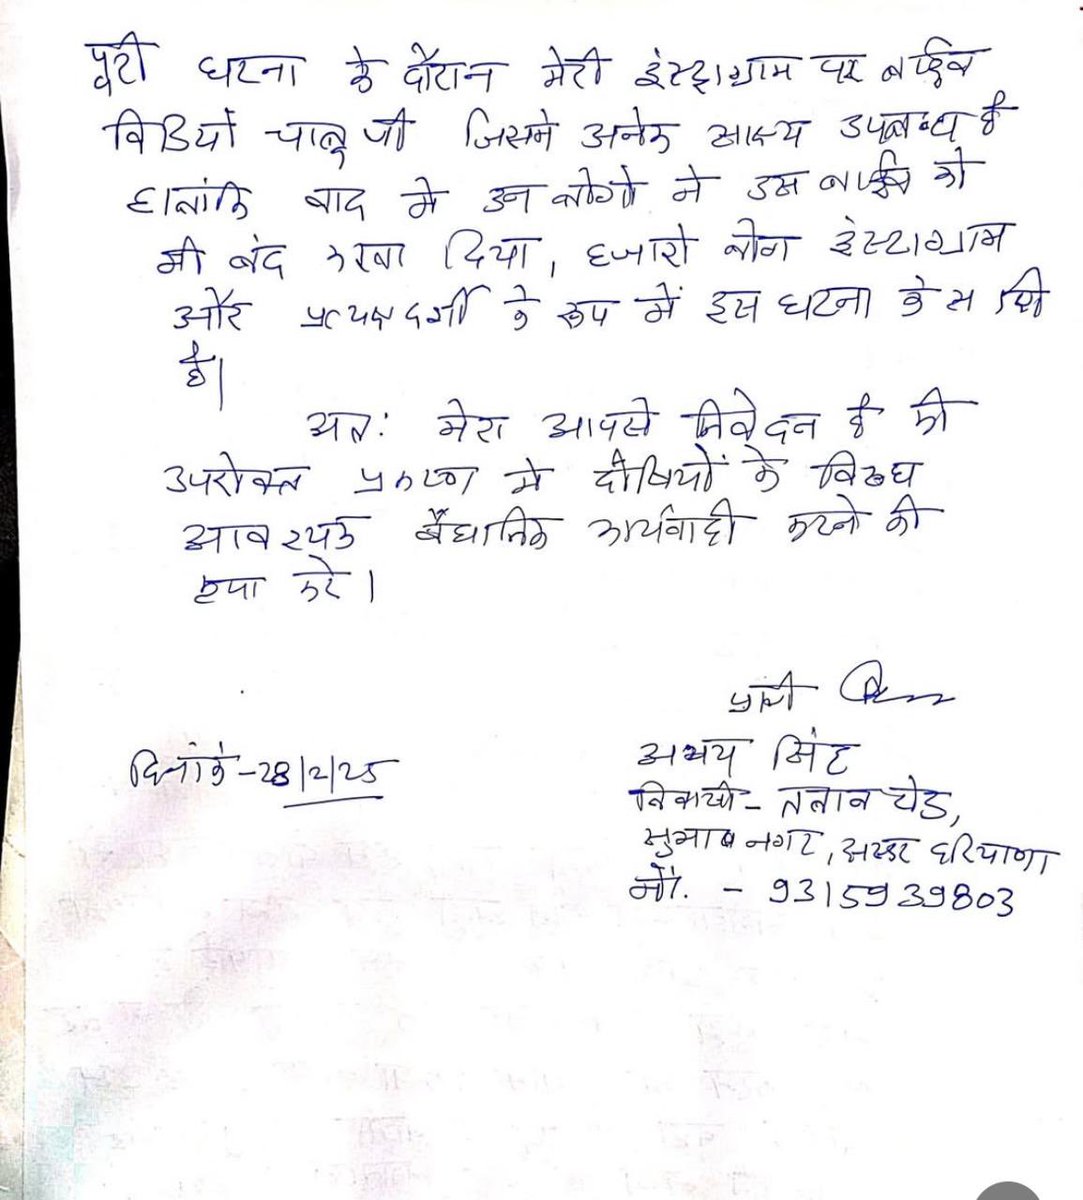 पूरी घटना के दौरान मेरी इंस्टाग्राम पर लाईव
विडियों चालू थी जिसमे अनेक साक्ष्य उपलब्ध है
हालांकि बाद मे उन लोगो ने उस लाईव को
भी बंद करवा दिया, हजारो लोग इंस्टाग्राम
और प्रत्यक्षदर्शी के रूप में इस घटना के साक्षी
है।
अतः मेरा आपसे निवेदन है की
उपरोक्त प्रकरण मे दोषियों के विरूध
आवश्यक वैधानिक कार्यवाही करने की
कृपा करे।
प्रार्थी
अभय सिंह
दिनांक - 28/2/25
निवासी - तलाव रोड,
सुभाष नगर, झज्जर हरियाणा
मो. - 9315939803